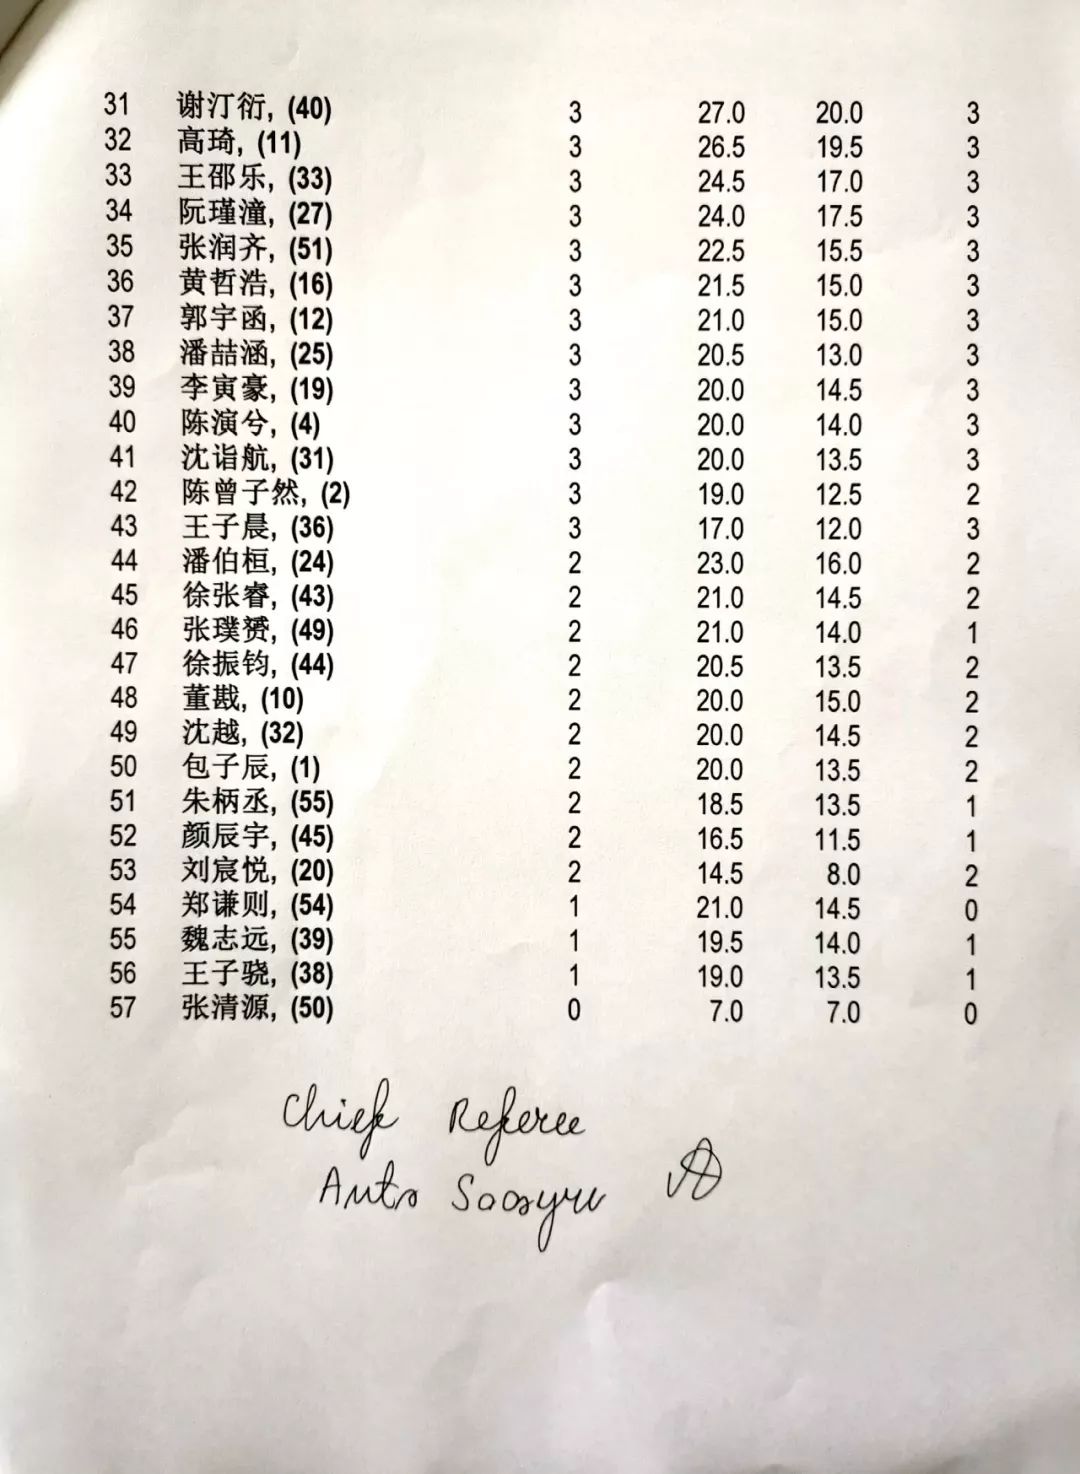 31 谢汀衍, (40) 3 27.0 20.0 3
32 高琦, (11) 3 26.5 19.5 3
33 王邵乐, (33) 3 24.5 17.0 3
34 阮瑾潼, (27) 3 24.0 17.5 3
35 张润齐, (51) 3 22.5 15.5 3
36 黄哲浩, (16) 3 21.5 15.0 3
37 郭宇函, (12) 3 21.0 15.0 3
38 潘喆涵, (25) 3 20.5 13.0 3
39 李寅豪, (19) 3 20.0 14.5 3
40 陈演兮, (4) 3 20.0 14.0 3
41 沈诣航, (31) 3 20.0 13.5 3
42 陈曾子然, (2) 3 19.0 12.5 2
43 王子晨, (36) 3 17.0 12.0 3
44 潘伯桓, (24) 2 23.0 16.0 2
45 徐张睿, (43) 2 21.0 14.5 2
46 张璞赟, (49) 2 21.0 14.0 1
47 徐振钧, (44) 2 20.5 13.5 2
48 董戡, (10) 2 20.0 15.0 2
49 沈越, (32) 2 20.0 14.5 2
50 包子辰, (1) 2 20.0 13.5 2
51 朱柄丞, (55) 2 18.5 13.5 1
52 颜辰宇, (45) 2 16.5 11.5 1
53 刘宸悦, (20) 2 14.5 8.0 2
54 郑谦则, (54) 1 21.0 14.5 0
55 魏志远, (39) 1 19.5 14.0 1
56 王子骁, (38) 1 19.0 13.5 1
57 张清源, (50) 0 7.0 7.0 0
Chief Referee